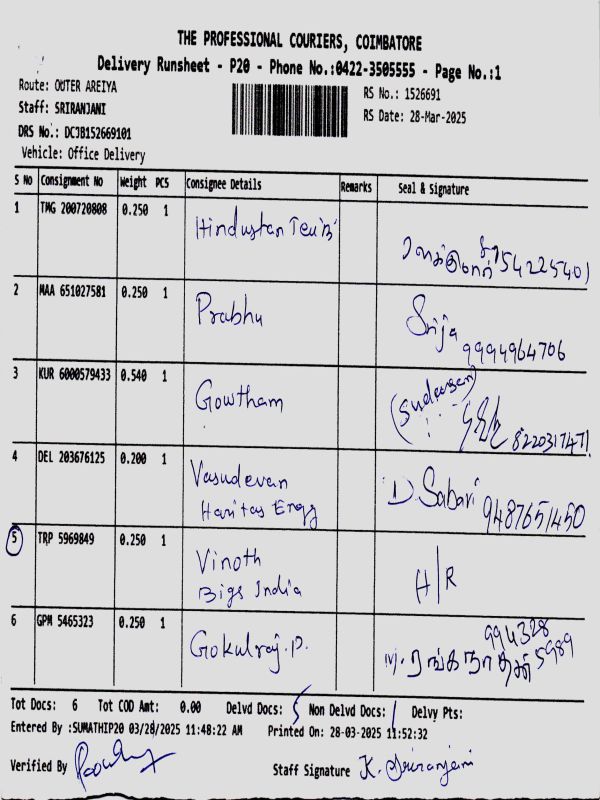 THE PROFESSIONAL COURIERS, COIMBATORE
Delivery Runsheet - P20 - Phone No.:0422-3505555 - Page No.:1
Route: OUTER AREIYA
RS No.: 1526691
Staff: SRIRANJANI
RS Date: 28-Mar-2025
DRS No.: DCJB152669101
Vehicle: Office Delivery
S No Consignment No Weight PCS Consignee Details Remarks Seal & Signature
1 TMG 200720808 0.250 1 Hindustan
2 MAA 651027581 0.250 1 Prabhu Srija
9994964706
3 KUR 6000579433 0.540 1 Gowtham (Sudarsan)
8220317471
4 DEL 203676125 0.200 1 Vasudevan D. Sabari
Haritas Engg 9487651450
5 TRP 5969849 0.250 1 Vinoth H/R
Bigs India
6 GPM 5465323 0.250 1 Gokulraj.P. 994328
5989
M. ரங்கநாதன்
Tot Docs: 6 Tot COD Amt: 0.00 Delvd Docs: 5 Non Delvd Docs: 1 Delvy Pts:
Entered By :SUMATHIP20 03/28/2025 11:48:22 AM Printed On: 28-03-2025 11:52:32
Verified By
Staff Signature K. Sriranjani